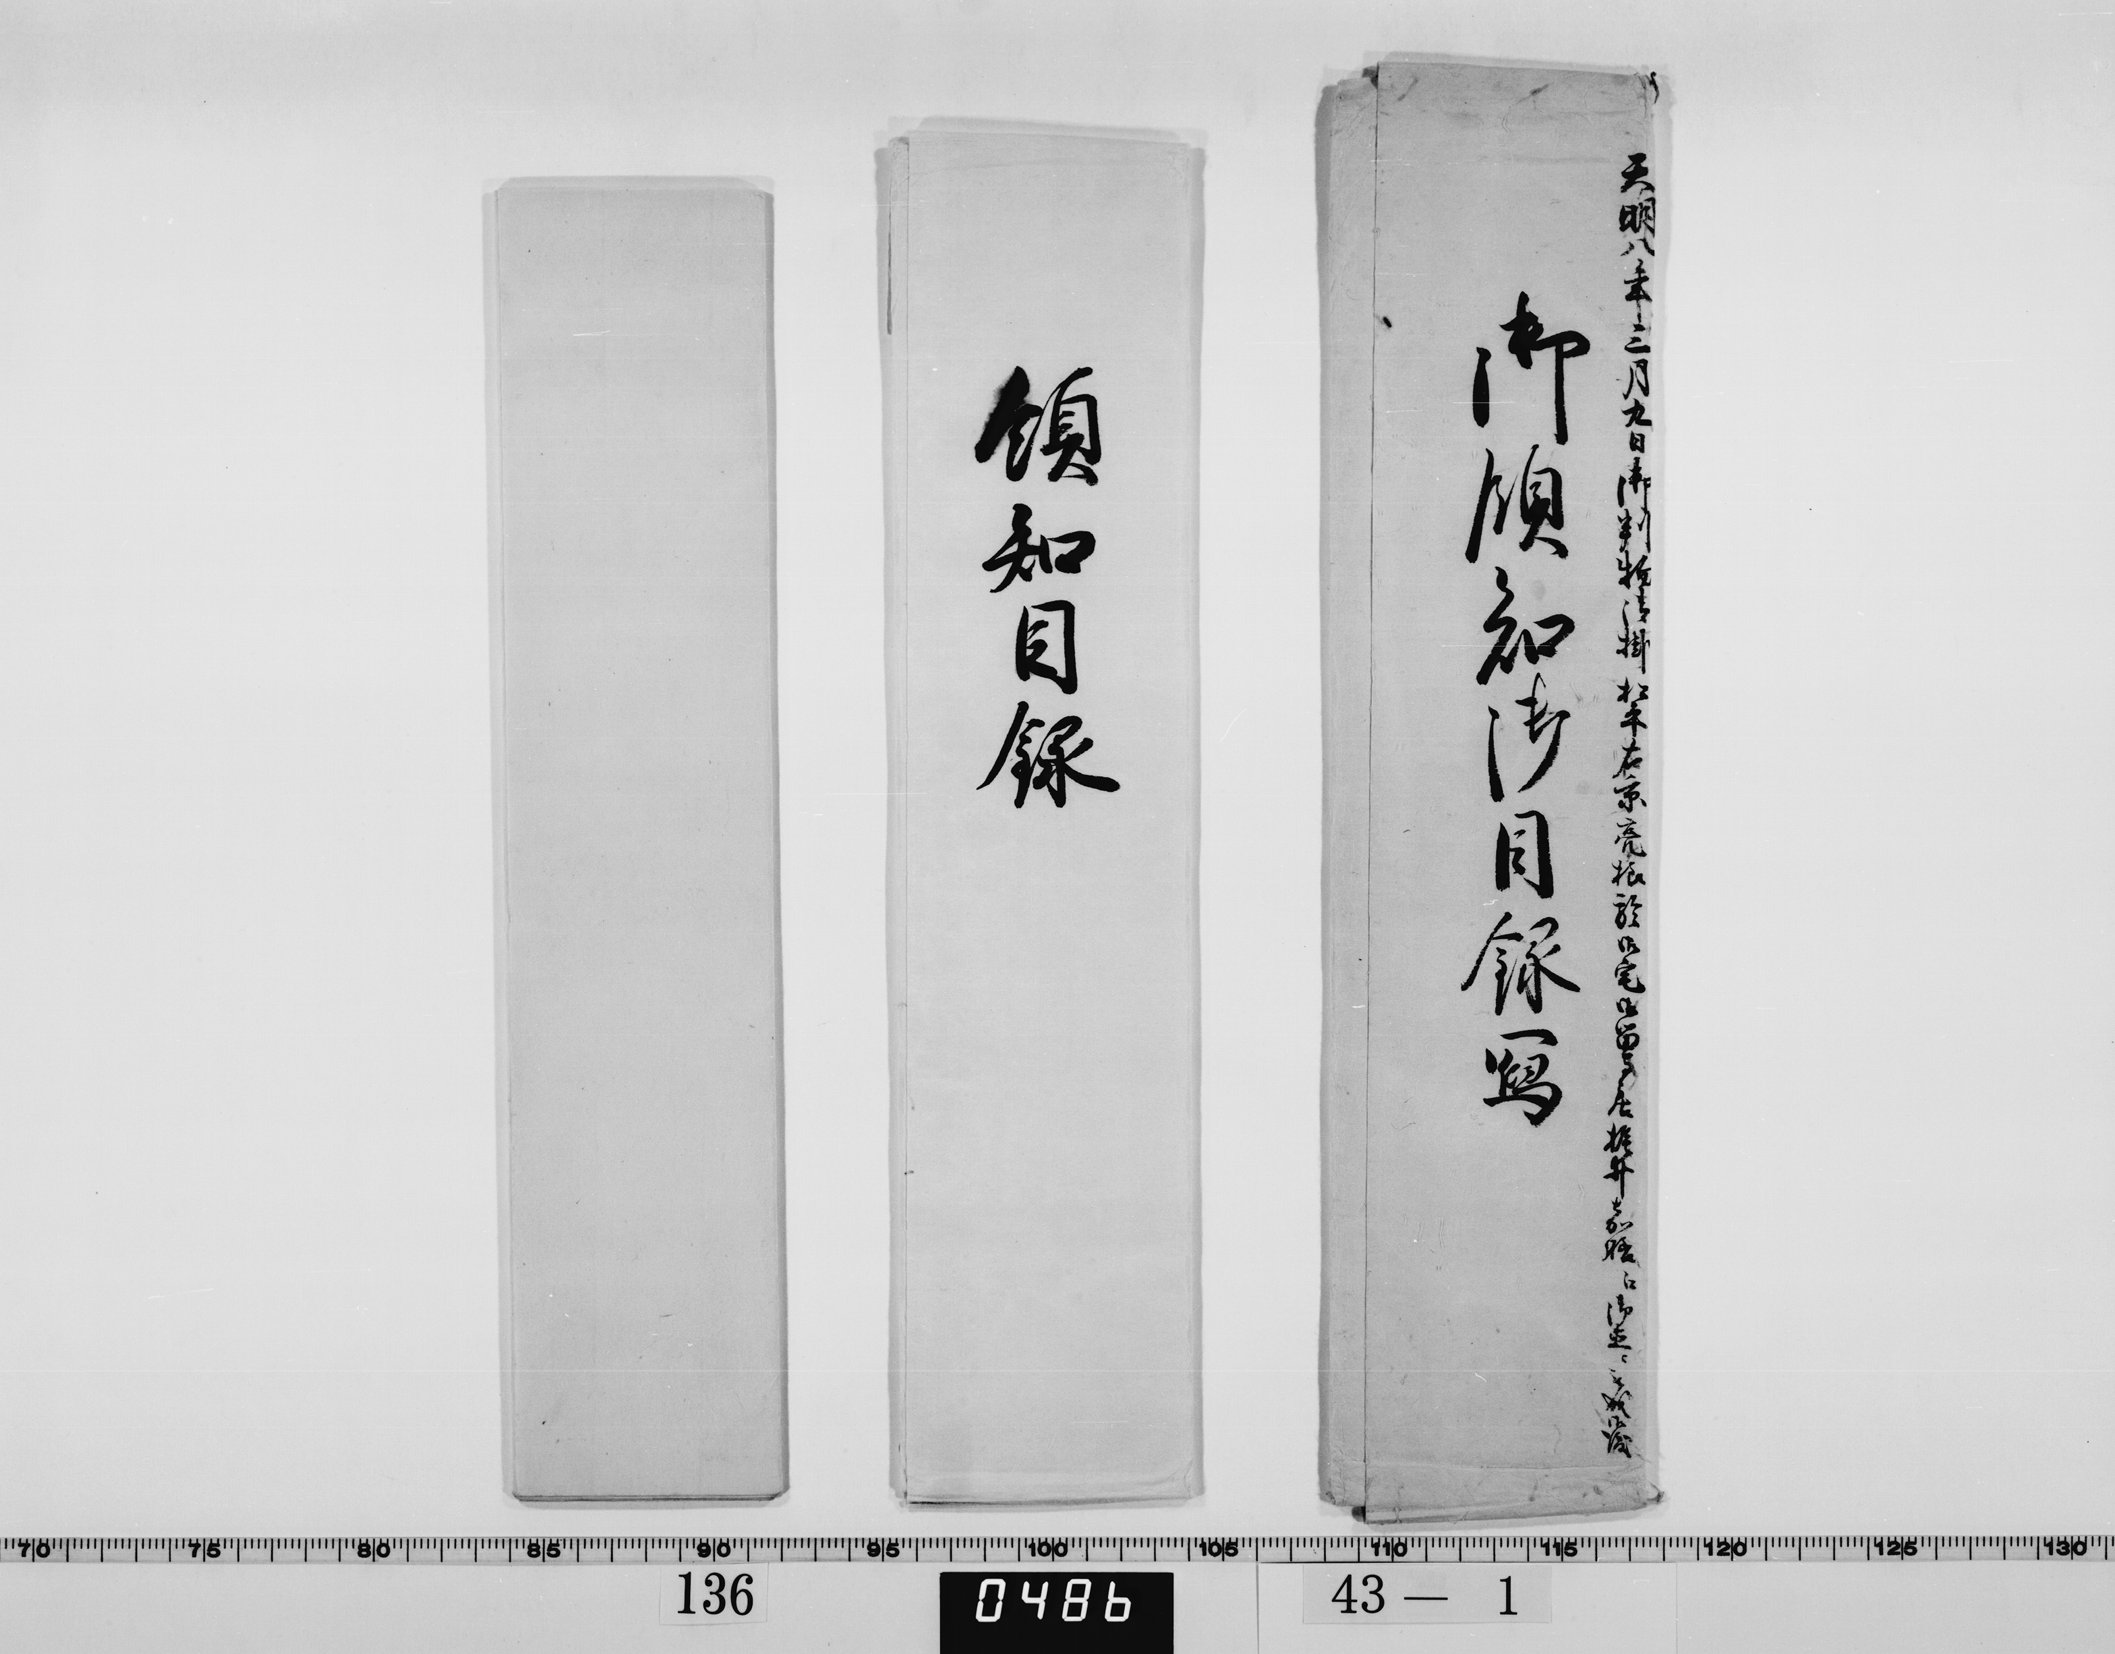 天明八年三月九日御判物御掛松平右京亮様於御宅御留守居
御領知御目録写
領知目録
70 75 80 85 90 95 100 105 110 115 120 125 130
136
0486
43— 1